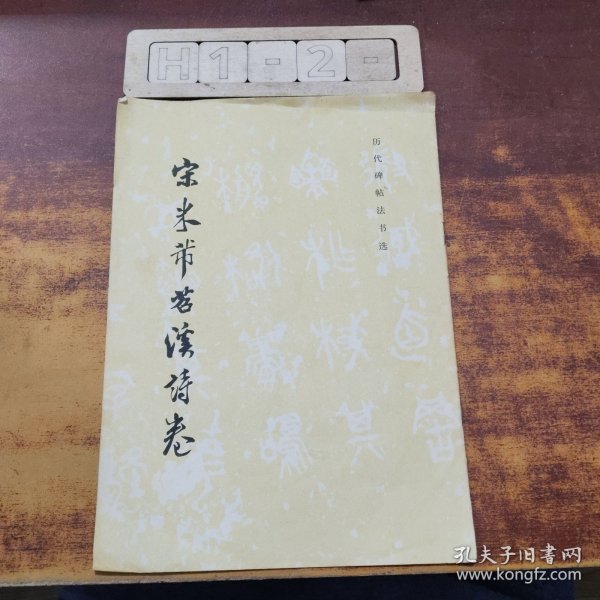 H1-2-
历代碑帖法书选
宋米芾苕溪诗卷
孔夫子旧书网
www.kongfz.com